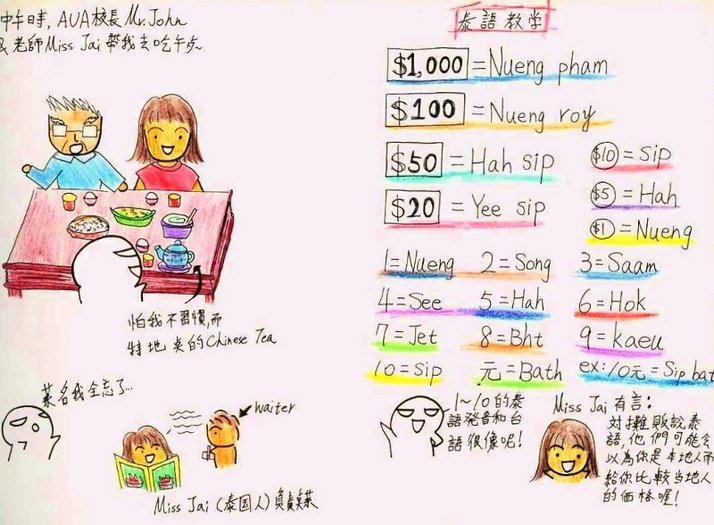 中午時, AUA校長 Mr.John
&老師Miss Jai 帶我去吃午餐~
怕我不習慣,而
特地点的Chinese Tea
菜名我全忘了...
waiter
Miss Jai (泰国人)負責点菜
泰語教学
$1,000 = Nueng pham
$100 = Nueng roy
$50 = Hah sip
$20 = Yee sip
$10 = Sip
$5 = Hah
$1 = Nueng
1=Nueng 2=Song 3=Saam
4=See 5=Hah 6=Hok
7=Jet 8=Bht 9=kaeu
10=sip 元=Bath ex:10元=Sip bat
1~10的泰
語発音和台
語很像呢!
Miss Jai 有言:
対攤販說泰
語,他們可能会
以為你是本地人而
給你比較当地人
的価格喔!